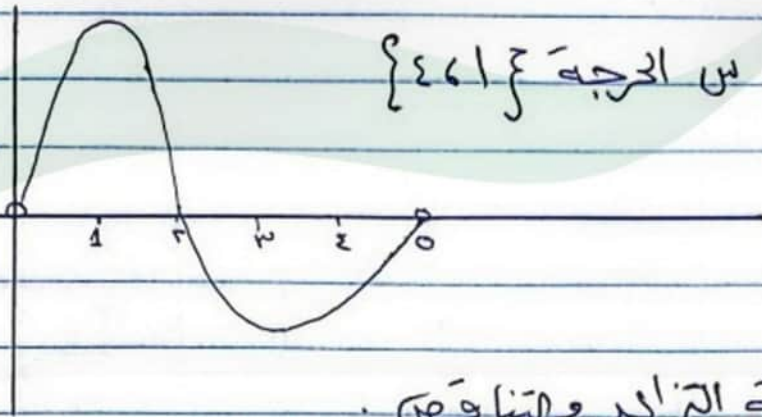 س الحرجة {١،٤}
١ ٢ ٣ ٤ ٥
ة التزايد والتناقص.